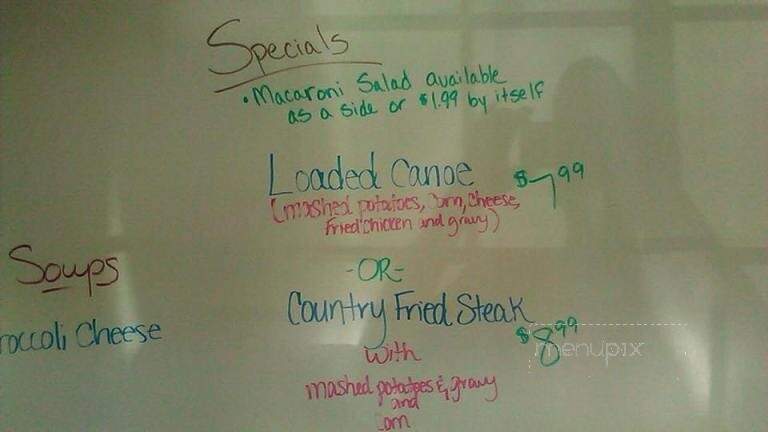 Specials
• Macaroni Salad available
as a side or $1.99 by itself
Loaded Canoe $7.99
(mashed potatoes, Corn, Cheese,
fried chicken and gravy)
Soups
roccoli Cheese
-OR-
Country Fried Steak
$8.99
with
mashed potatoes & gravy
and
corn
menupix